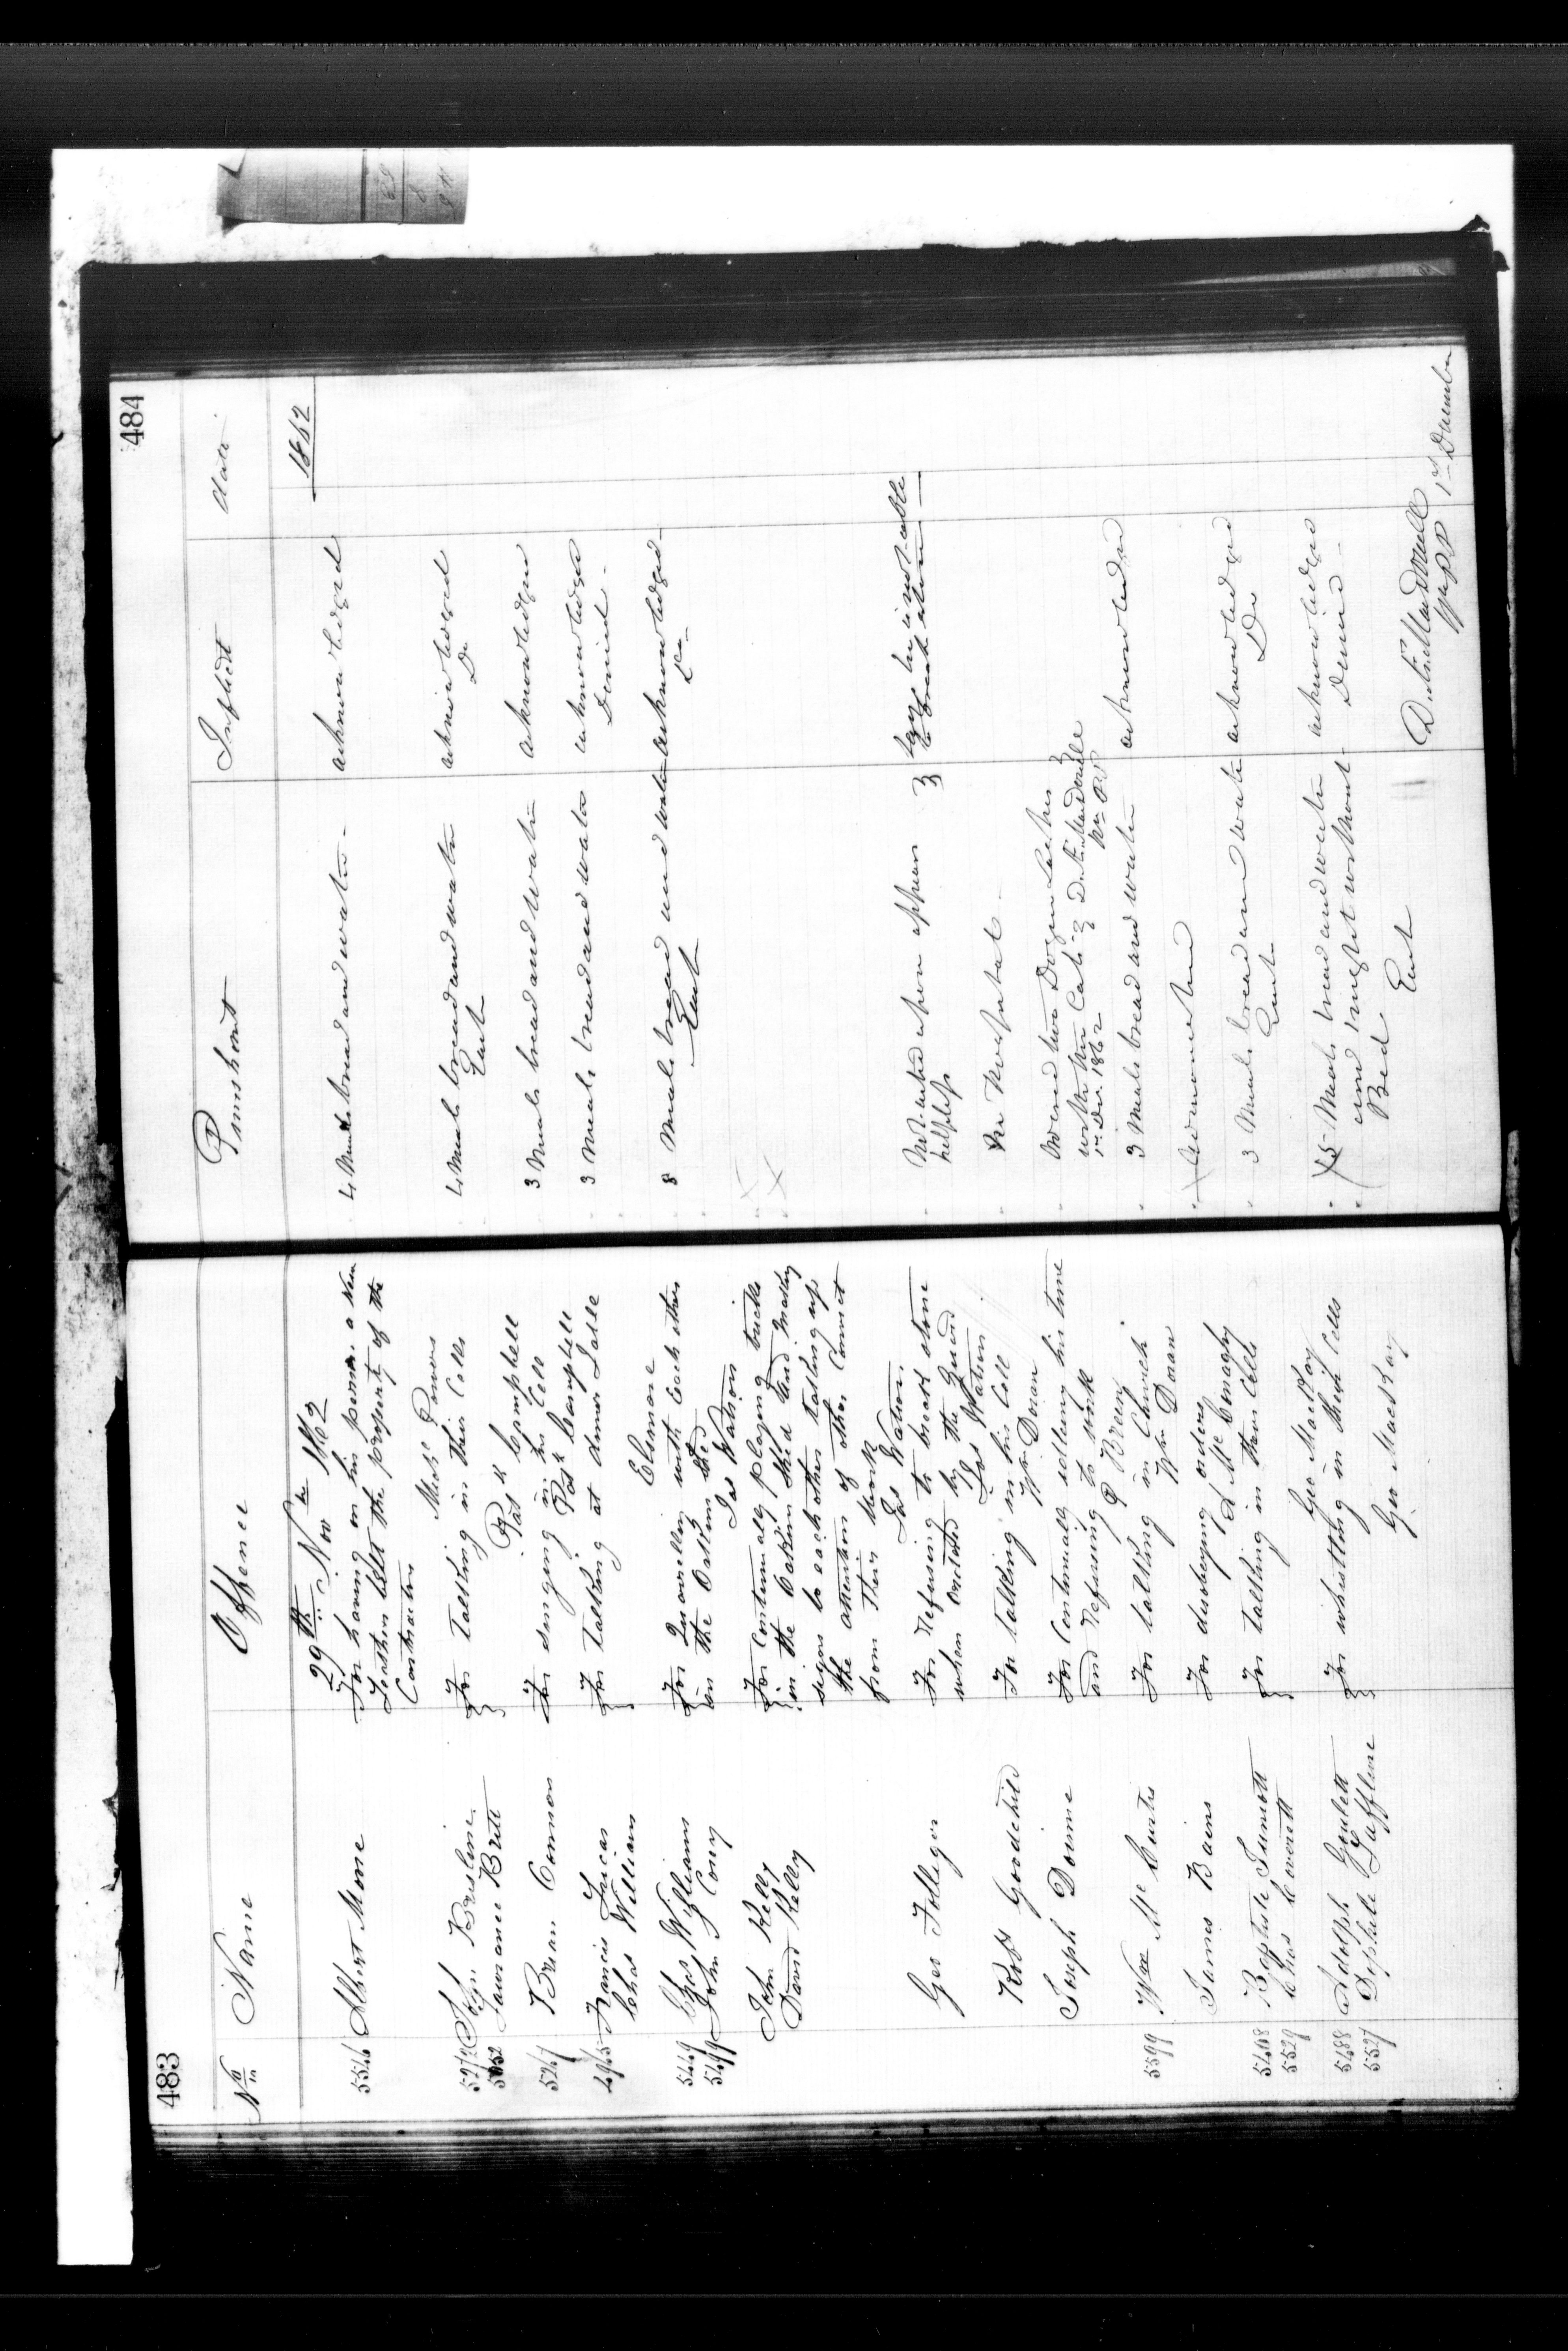 483
No Name Offence
29th Novber 1862
5546 Albert Morse For having on his person a new
Leather belt the property of the
Contractor
Michl Powers
John Breslin For Talking in their Cells
Lawrence Brett
Patk Campbell
5247 Brian Connors For singing in his Cell
Patk Campbell
Francis Lucas For Talking at dinner Table
Chas William
Elsmore
5449 Chas Williams For Quarrelling with each other
5499 John Cony in the Oakum Shed
Jas Watson
John Kelly For Continually playing tricks
David Kelly in the Oakum Shed and Making
signs to each other taking up
the attention of other Convict
from their work
Jas Watson
Geo Folliger For Refusing to break stone
when ordered by the Guard
Jas Watson
Robt Goodchild For talking in his Cell
Wm Doran
Joseph Doime For Continually idleing his time
and Refusing to work
P Breny
5399 Wm McCurtis For talking in Church
Wm Doran
James Bains For disobeying orders
A McConaghy
5408 Baptiste Turcott For talking in their Cells
5529 Chas Everett
Geo MacKay
5488 Adolph Goulett For whistling in their Cells
5527 Dephile Laffleur
Geo MacKay
484
Punishment Inflicted date
1862
4 Meals bread and water acknowledged
4 Meals bread and water acknowledged
Each Do
3 Meals bread and water acknowledged
3 Meals bread and water acknowledged
Denied
8 Meals bread and water acknowledged
Each Do
Not acted upon appears
helpless
says he is not able
to break stone
In Hospital
Ordered two Dozen Lashes
with the Cats D. Æ. MacDonell
1st Dec. 1862
3 Meals bread and water acknowledged
Admonished
3 Meals bread and water acknowledged
Each Do
5 Meals bread and water acknowledged
and 1 night without Denied
Bed Each
D. Æ. MacDonell
1st December